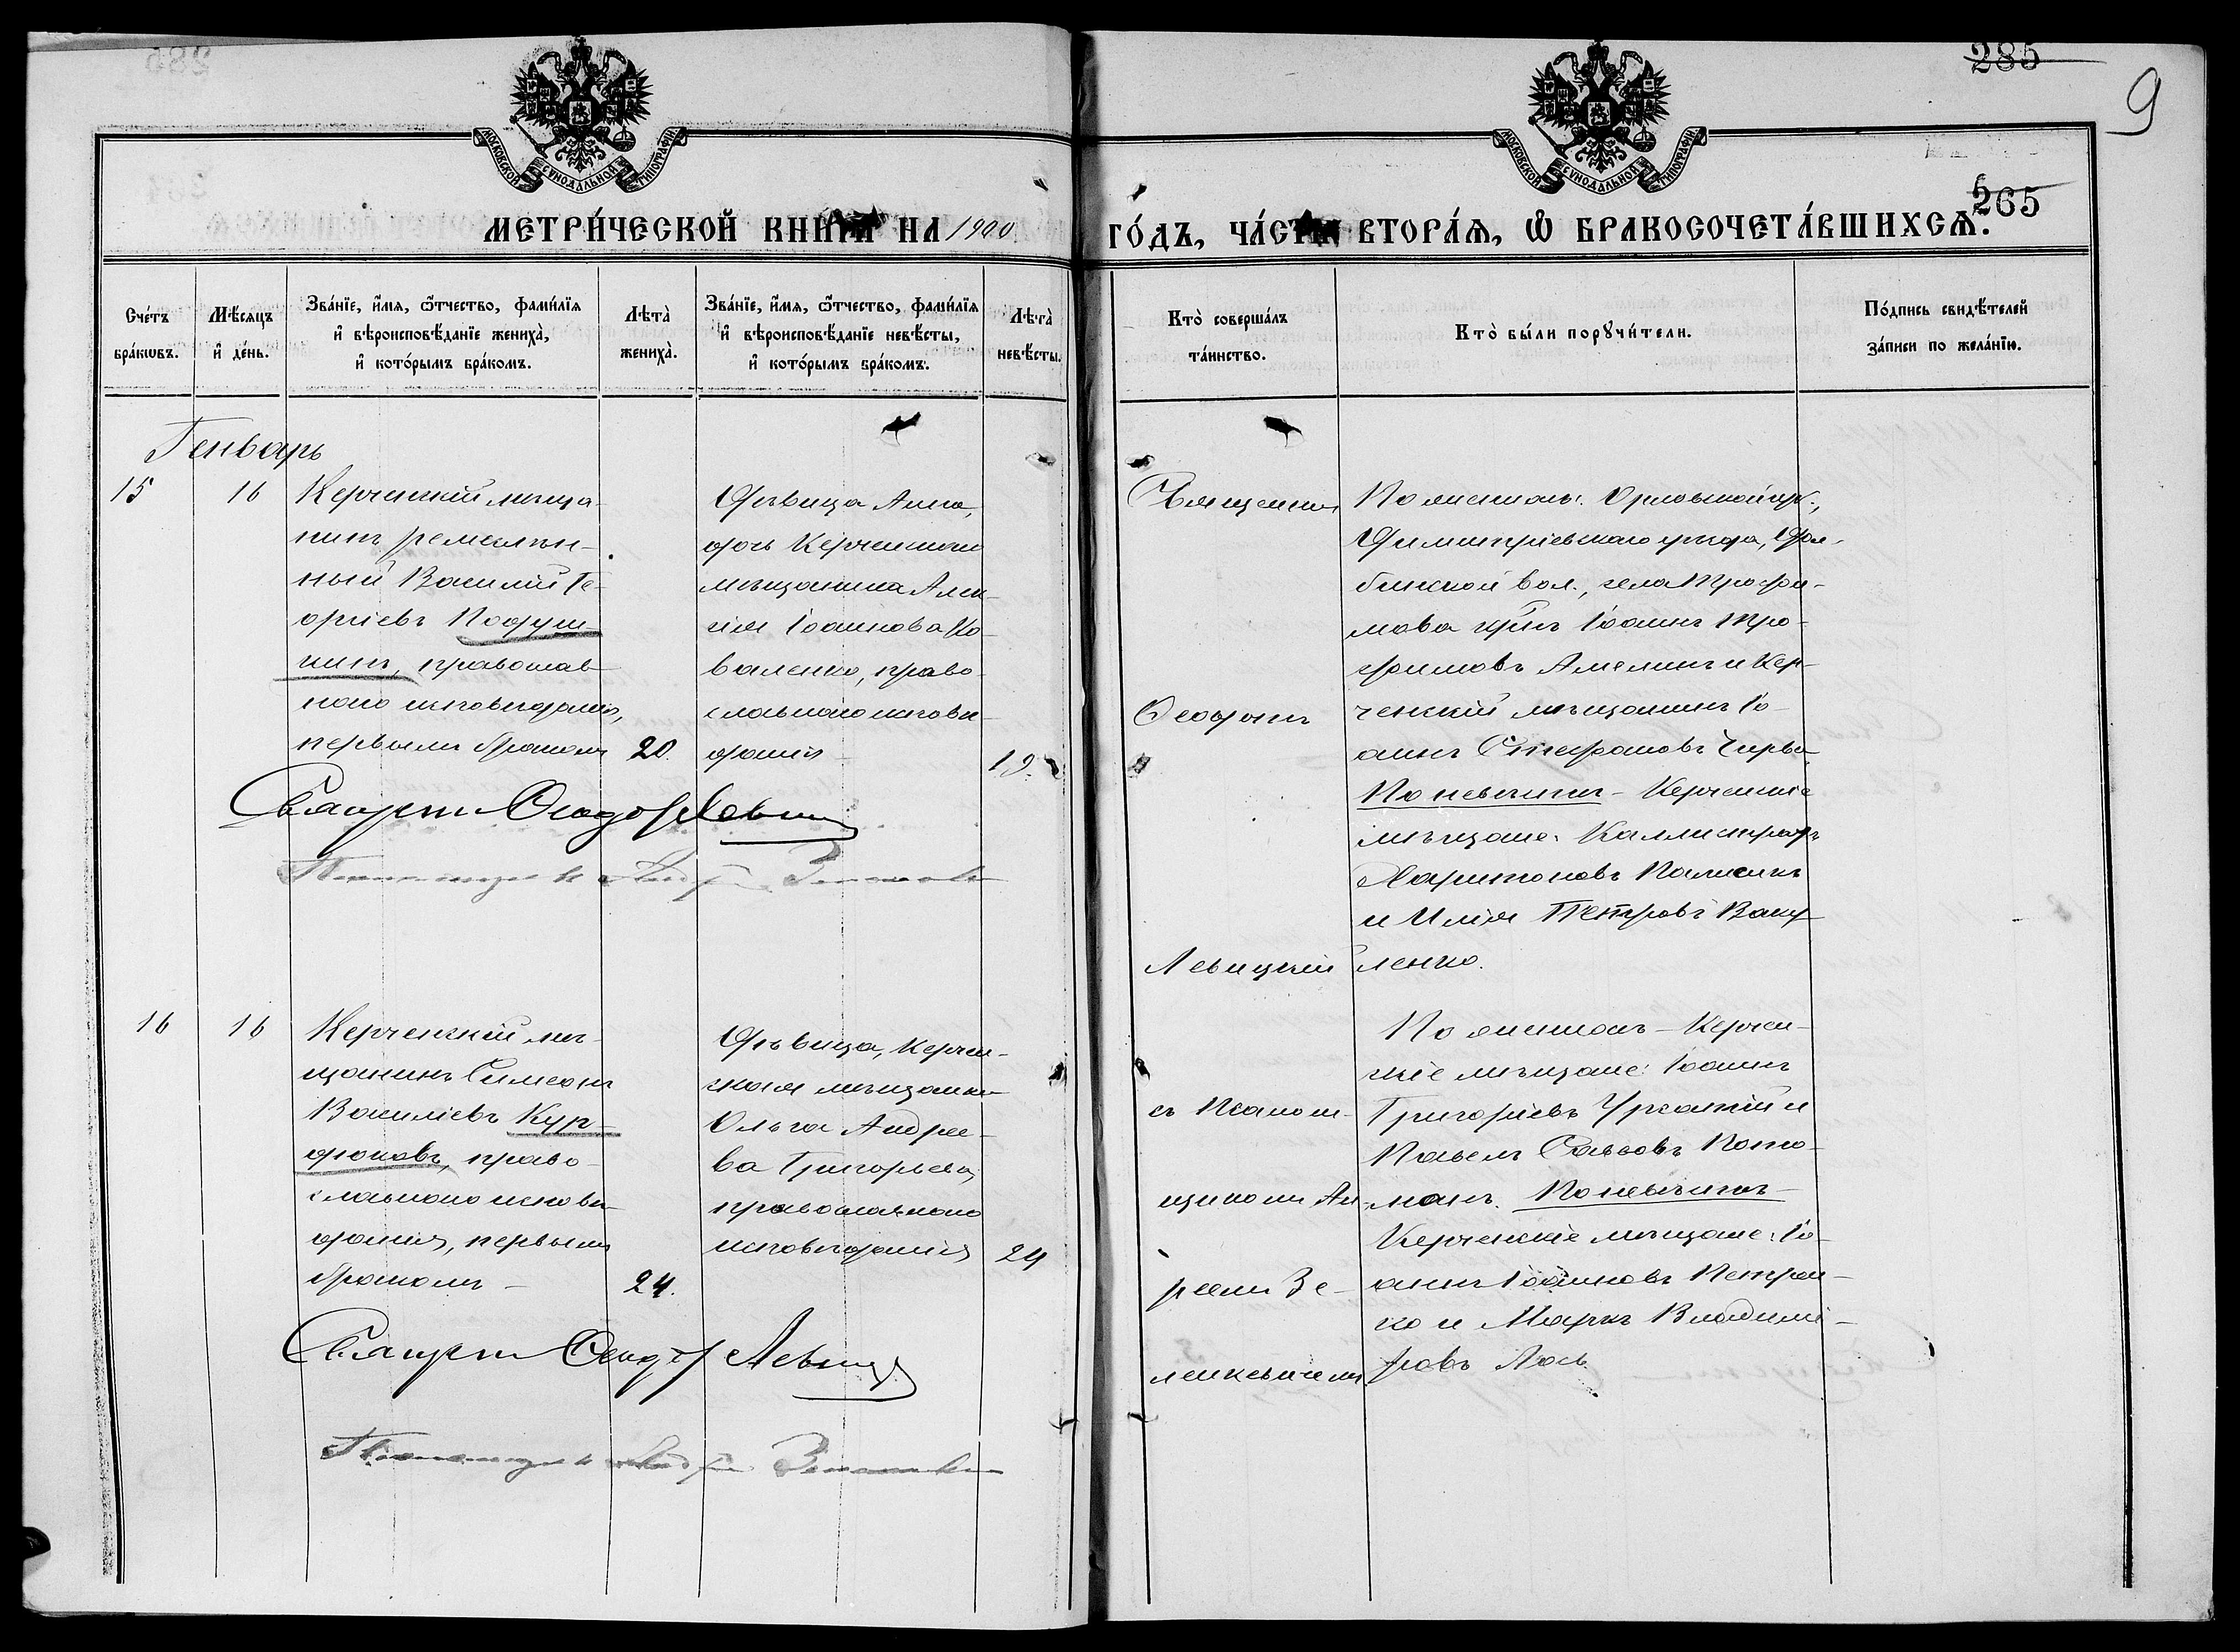 285
9
265
МОСКОВСКОЙ СѴНОДАЛЬНОЙ ТИПОГРАФІИ
МОСКОВСКОЙ СѴНОДАЛЬНОЙ ТИПОГРАФІИ
МЕТРИ́ЧЕСКОЙ КНИГИ НА 1900 ГО́ДЪ, ЧА́СТЬ ВТОРА́Я, Ѡ҆ БРАКОСОЧЕТА́ВШИХСѦ.
Сче́тъ
бра́кѡвъ.
Мѣ́сяцъ
и҆ де́нь.
Зва́нїе, и҆́мя, ѻ҆́тчество, фамѝлїя
и҆ вѣроисповѣ́данїе женихà,
и҆ кото́рымъ бра́комъ.
Лѣ́та
женихà.
Зва́нїе, и҆́мя, ѻ҆́тчество, фамѝлїя
и҆ вѣроисповѣ́данїе невѣ́сты,
и҆ кото́рымъ бра́комъ.
Лѣ́та
невѣ́сты.
Кто̀ соверша́лъ
та́инство.
Кто̀ бы́ли порꙋчи́тели.
По́дпись свидѣ́телей
за́писи по жела́нїю.
Генварь
15
16
Керченскій мѣща-
нинъ ремеслен-
ный Василій Ге-
оргіевъ Подуш-
кинъ, православ-
наго исповѣданія,
первымъ бракомъ
20.
Дѣвица Анна,
дочь Керченскаго
мѣщанина Алек-
сія Іоаннова Ко-
валенко, право-
славнаго исповѣ-
данія
19.
Священникъ
Ѳеодоръ
Левицкій
По женихѣ: Орловской губ.,
Димитріевскаго уѣзда,
бинской вол., села Трофи-
мова кр̃нъ Іоаннъ Тро-
фимовъ Амелинъ и Кер-
ченскій мѣщанинъ Іо-
аннъ Стефановъ
По невѣстѣ - Керченскіе
мѣщане: Каллистратъ
Харитоновъ
и Илія Петровъ
ленко.
Священникъ Ѳеодоръ Левицкій
16
16
Керченскій мѣ-
щанинъ Симеонъ
Василіевъ Кур-
дюковъ, право-
славнаго исповѣ-
данія, первымъ
бракомъ -
24.
Дѣвица, Керчен-
ская мѣщанка
Ольга Андрее-
ва Григорьева,
православнаго
исповѣданія
24
съ Псалом-
щикомъ Ан-
реемъ Зе-
ленкевичемъ
По женихѣ - Керчен-
скіе мѣщане: Іоаннъ
Григоріевъ и
Павелъ Саввовъ
По невѣстѣ -
Керченскіе мѣщане: Іо-
аннъ Іоанновъ Петрен-
ко и Маркъ Владимі-
ровъ Лось
Священникъ Ѳеодоръ Левицкій